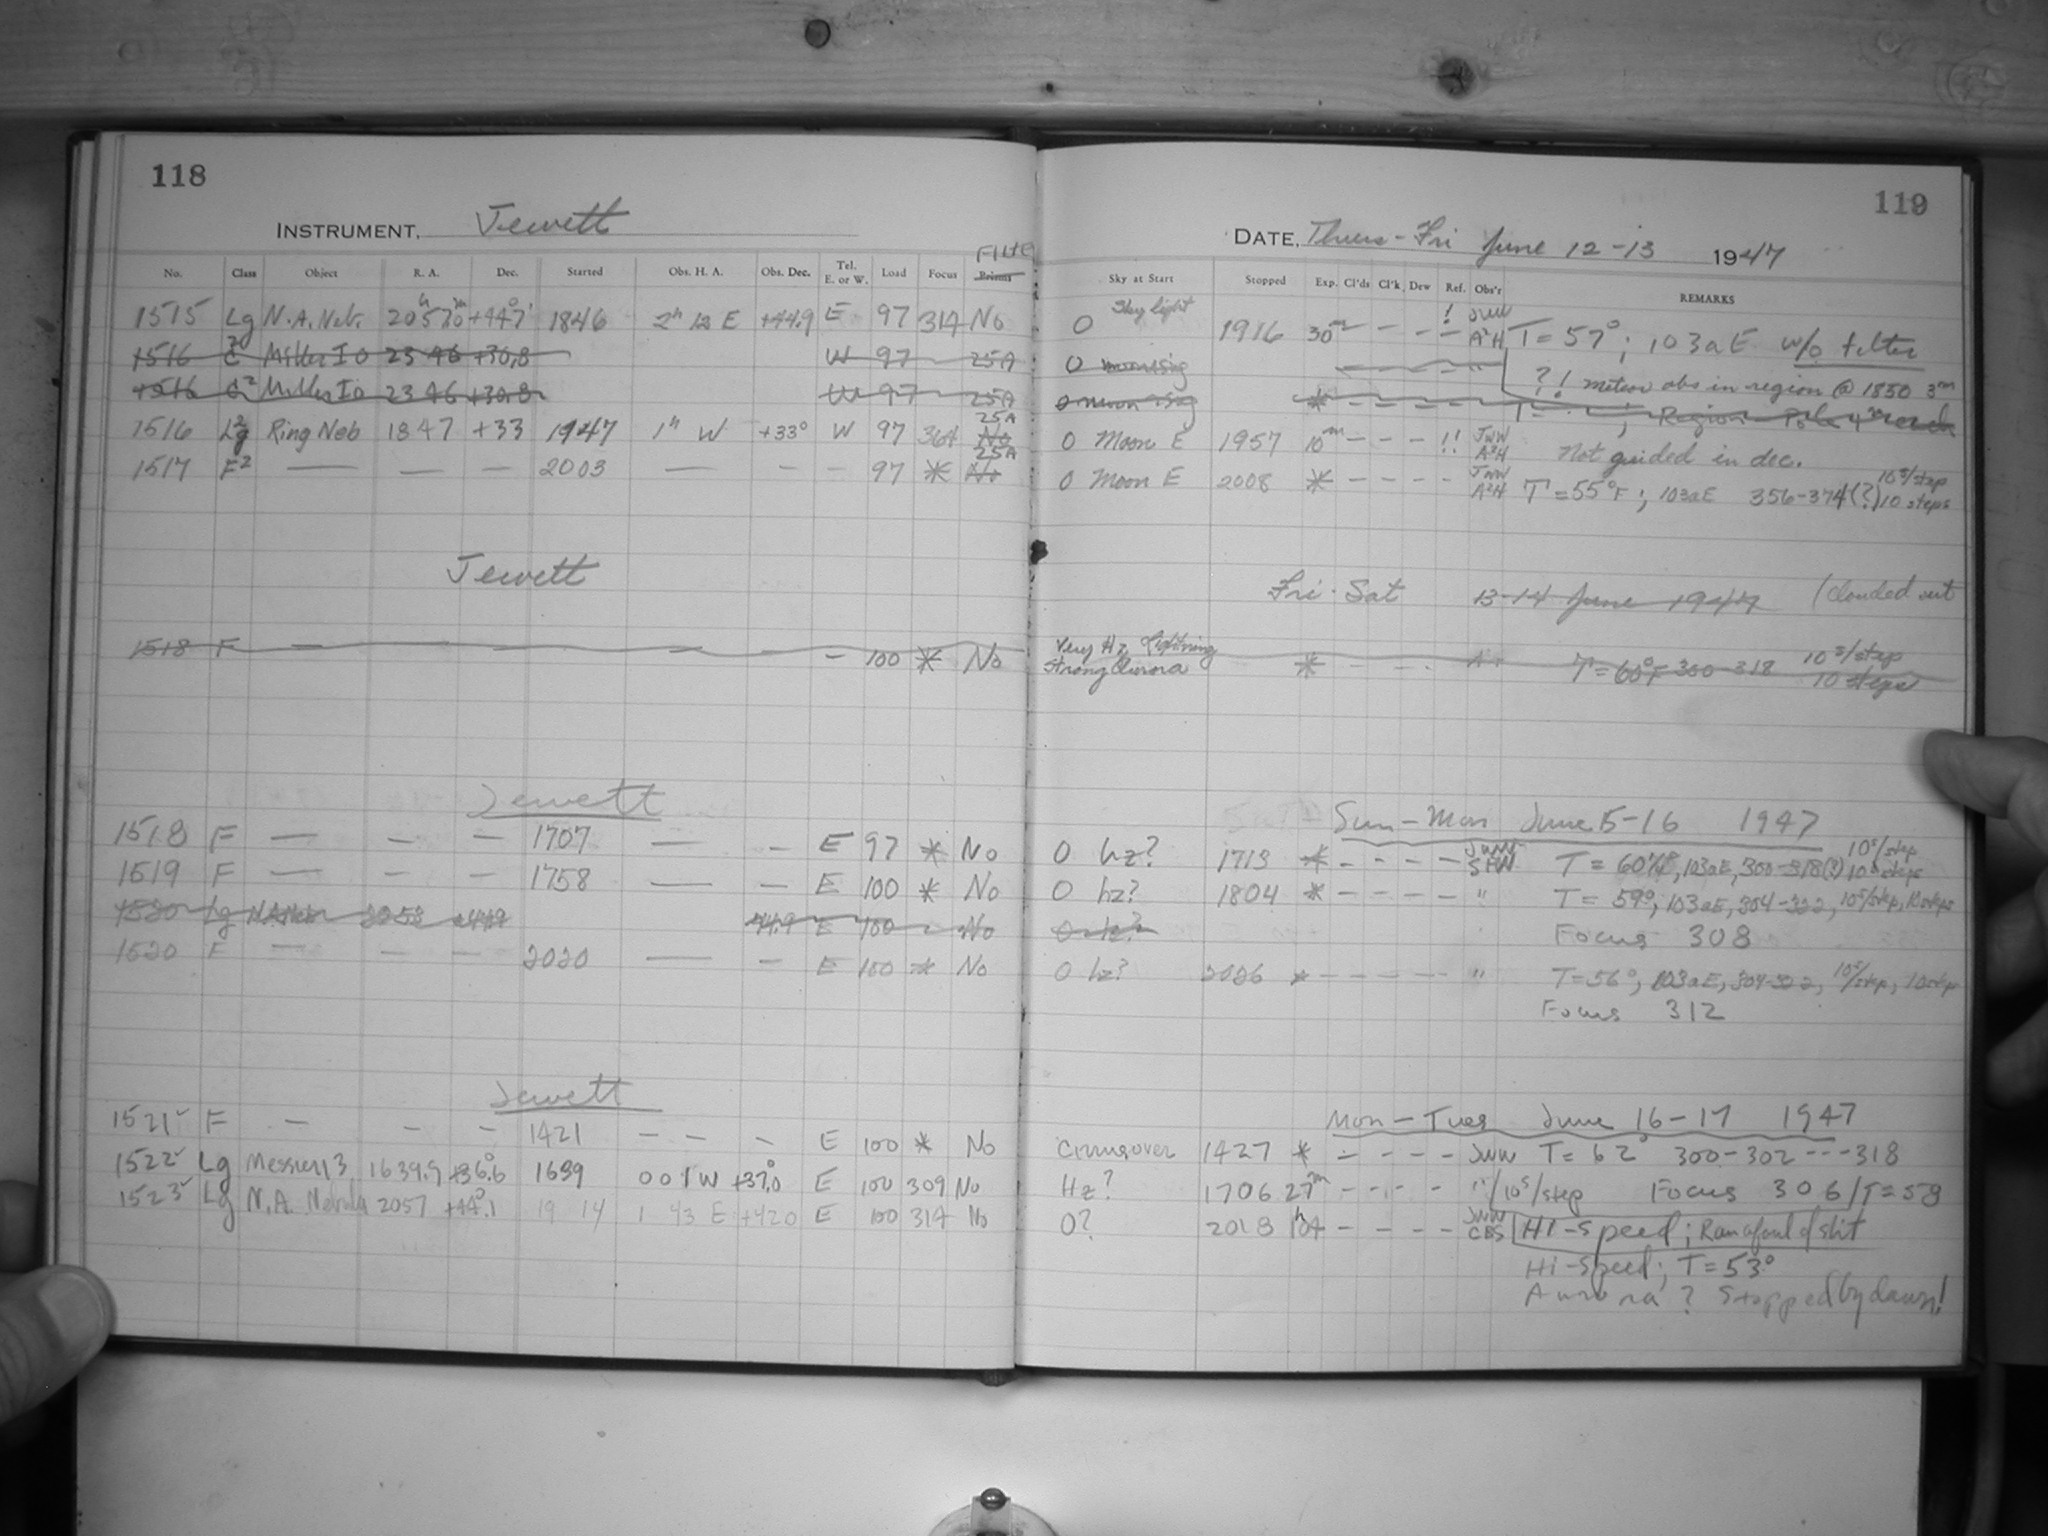 118
INSTRUMENT. Jewett
No. Class Object R. A. Dec. Started Obs. H. A. Obs. Dec. Tel. E. or W. Load Focus Filter Prism
1515 Lg N.A. Neb. 20h57m0 +44°7' 1846 2h 12 E +44.9 E 97 314 No
1516 Miller I o 23 46 +30.8 W 97 25A
1516 Miller I o 23 46 +30.8 W 97 25A
1516 Lg Ring Neb 18 47 +33 1947 1h W +33° W 97 364 25A No
1517 F2 — — — 2003 — - - 97 * 25A No
Jewett
1518 F — — — — — - 100 * No
Jewett
1518 F — — — 1707 — - E 97 * No
1519 F — — — 1758 — - E 100 * No
1520 Lg N.A.Neb 2052 +44.9 44.9 E 100 - No
1520 F — — — 2020 — - E 100 * No
Jewett
1521 F — — — 1421 - - - - E 100 * No
1522 Lg Messier 13 1639.9 +36°.6 1639 0 01 W +37°.0 E 100 309 No
1523 Lg N.A. Nebula 2057 +44°.1 19 14 1 43 E +42.0 E 100 314 No
119
DATE, Thurs - Fri June 12-13 1947
Sky at Start Stopped Exp. Cl'ds Cl'k Dew Ref. Obs'r REMARKS
0 Sky light 1916 30m - - - ! JWW A2H T = 57°; 103aE w/o filter
0 moonrising ?! meteor obs in region @ 1850 3m
0 moon rising * - - - - T = ; Region
0 Moon E 1957 10m - - - !! JWW A2H Not guided in dec.
0 Moon E 2008 * - - - - JWW A2H T = 55°F; 103aE 356-374(?) 10s/step 10 steps
Fri - Sat 13-14 June 1947 (clouded out
Very Hz Lightning Strong Aurora * - - - T = 60°F 300-318 10s/step 10 steps
Sun - Mon June 15-16 1947
0 hz? 1713 * - - - - JWW T = 60°, 103aE, 300-318(?) 10s/step 10 steps
0 hz? 1804 * - - - - " T = 59°, 103aE, 304-322, 10s/step, 10 steps
0 hz? Focus 308
0 hz? 2026 * - - - - " T = 56°, 103aE, 304-322, 10s/step, 10 step
Focus 312
Mon - Tues June 16-17 1947
1427 * - - - - JWW T = 62° 300-302---318
Hz? 1706 27m - - - - "/10s/step Focus 306/T=58
0? 2018 1h04 - - - - JWW CBS Hi-Speed; Ran afoul of slit
Hi-Speed; T = 53°
Aurora? Stopped by dawn!